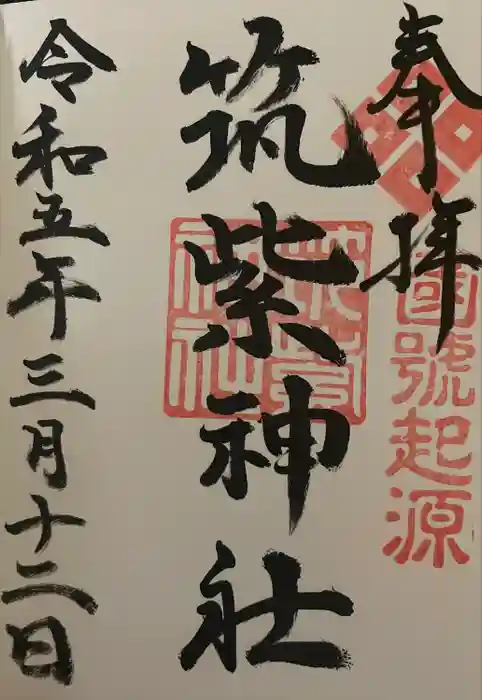 奉拝
國號起源
筑紫神社
筑紫神社
令和五年三月十二日